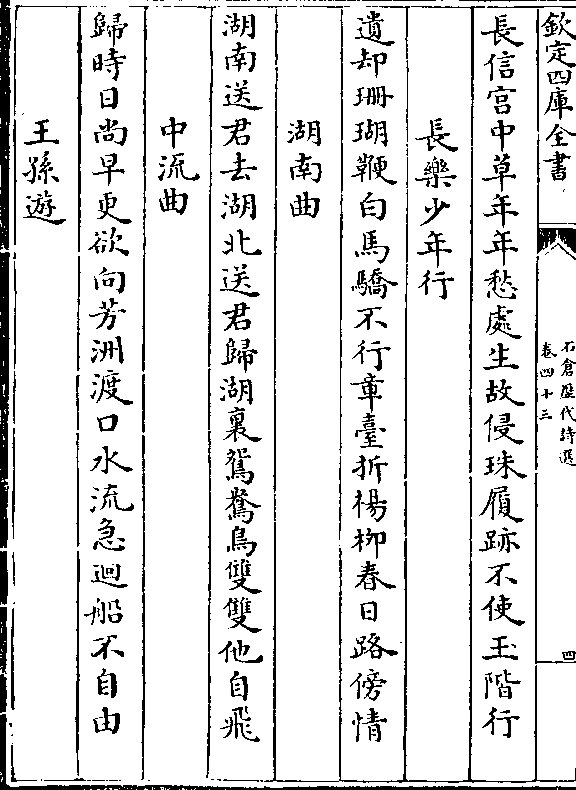 欽定四庫全書
石倉歷代詩選
卷四十三
四
長信宫中草年年愁處生故侵珠履跡不使玉階行
長樂少年行
遺却珊瑚鞭白馬驕不行章臺折楊柳春日路傍情
湖南曲
湖南送君去湖北送君歸湖裏鴛鴦鳥雙雙他自飛
中流曲
歸時日尚早更欲向芳洲渡口水流急迴船不自由
王孫遊